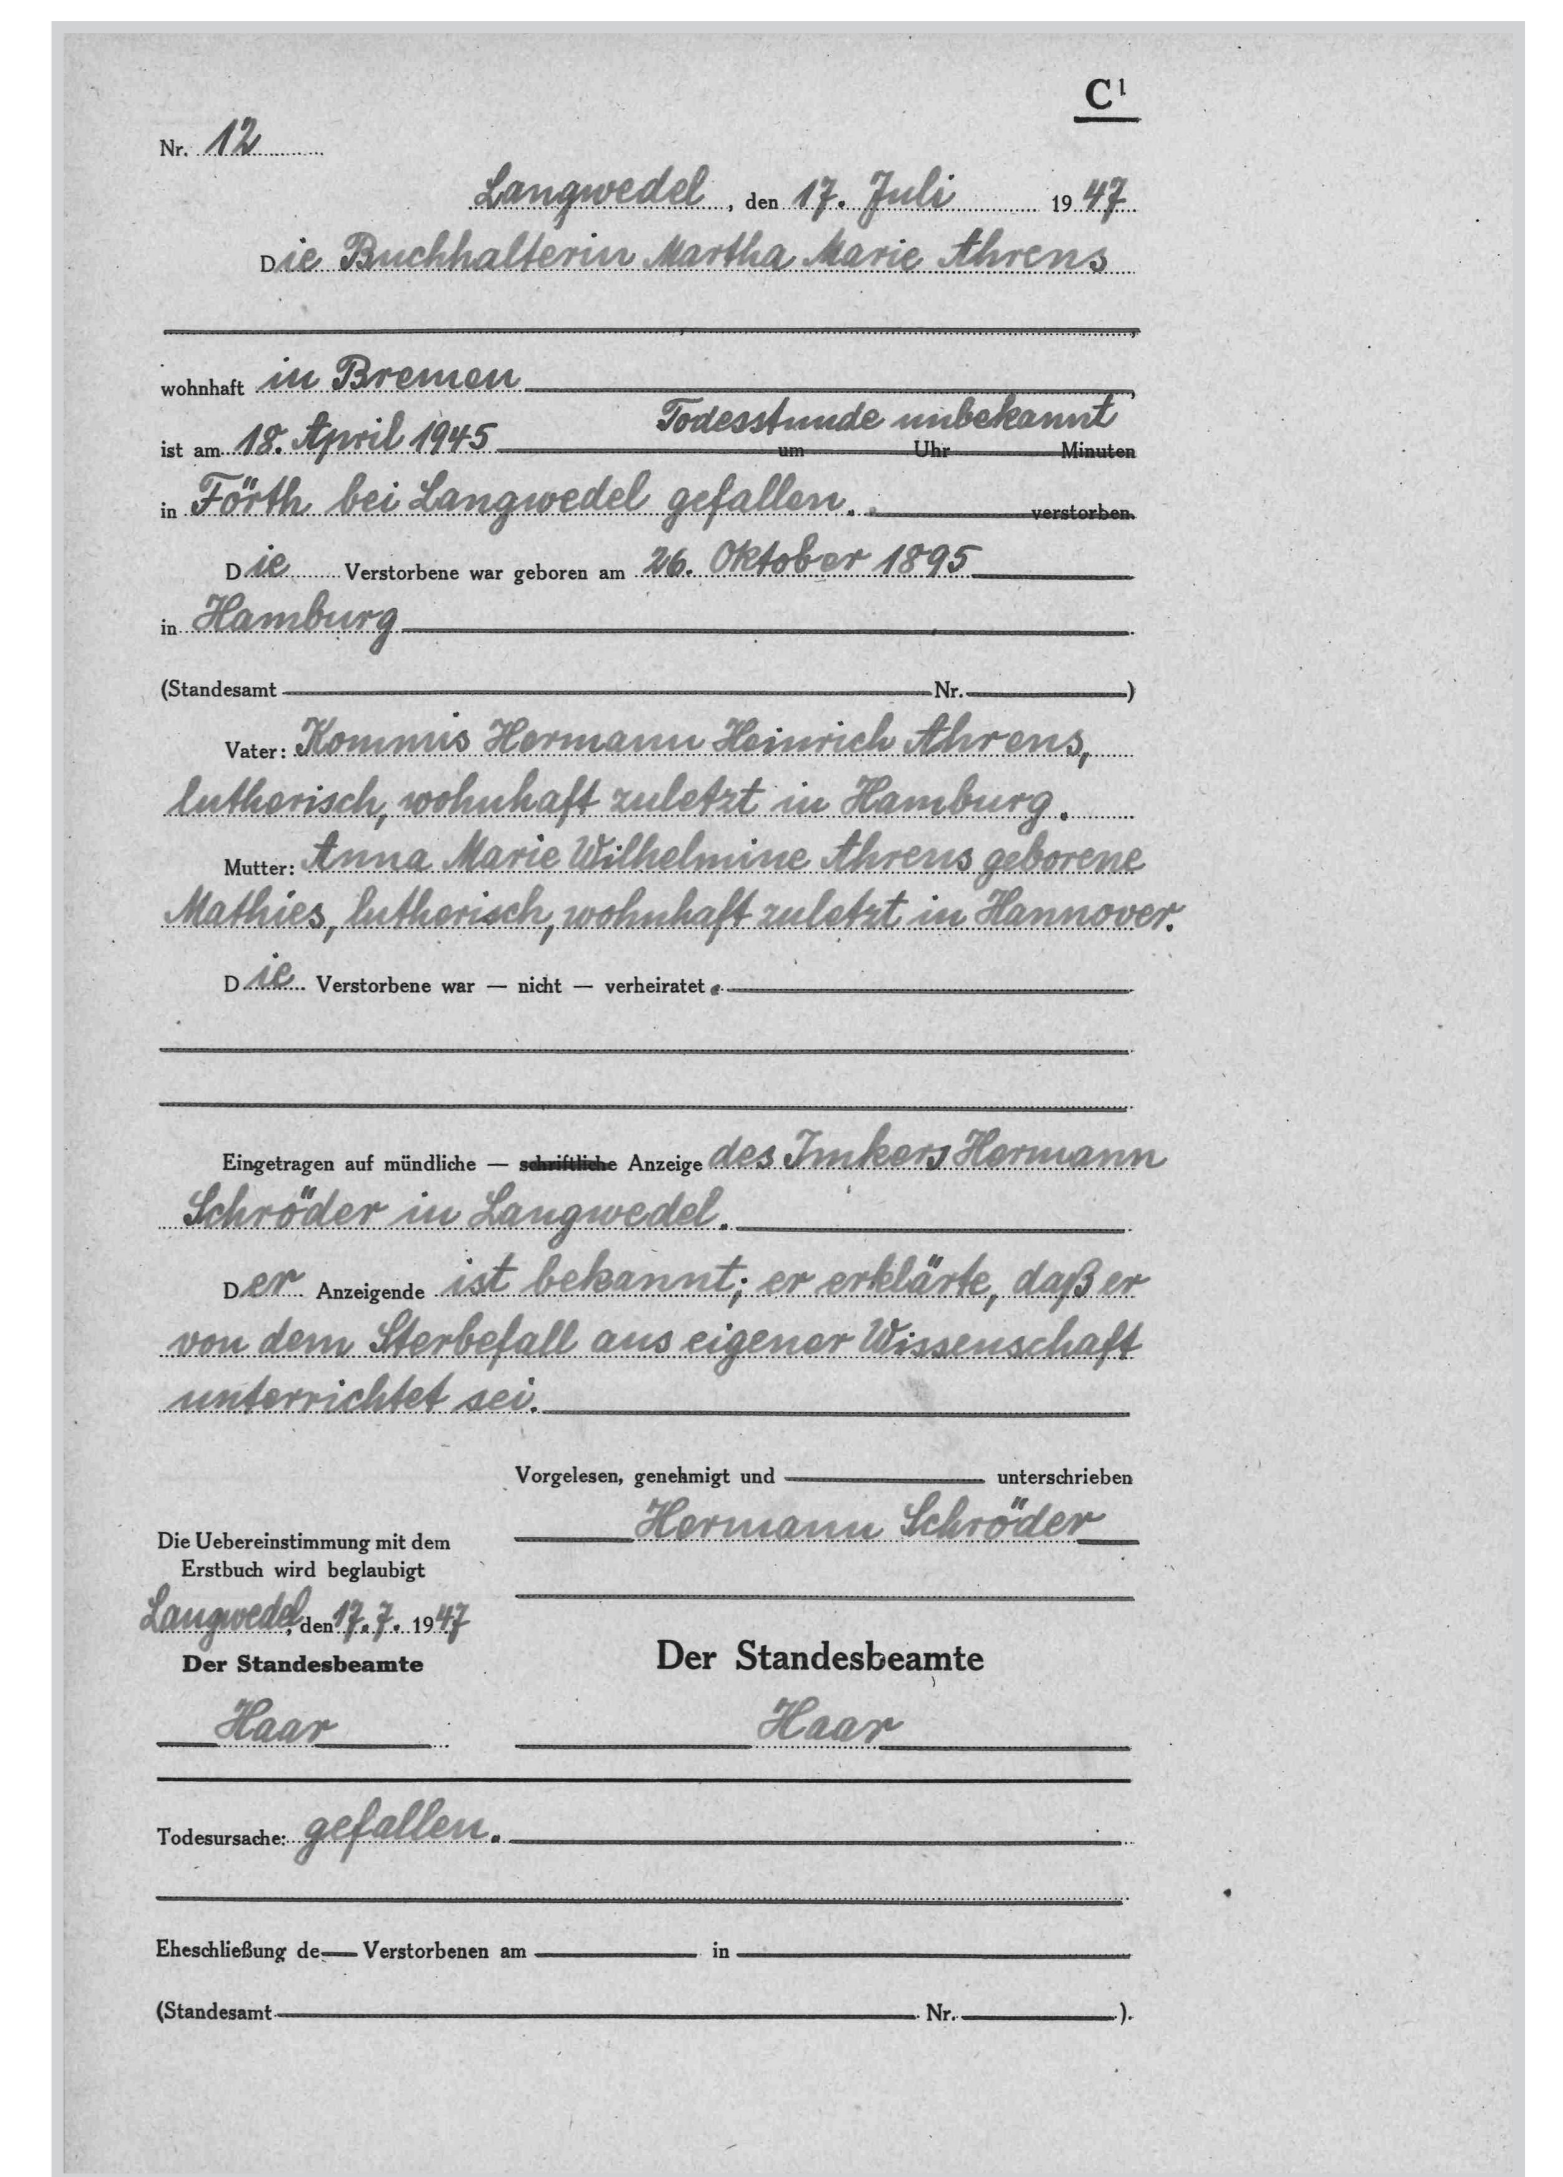 C¹
Nr. 12
Langwedel, den 17. Juli 1947
Die Buchhalterin Martha Marie Ahrens
wohnhaft in Bremen
Todesstunde unbekannt
ist am 18. April 1945 um Uhr Minuten
in Förth bei Langwedel gefallen. verstorben.
Die Verstorbene war geboren am 26. Oktober 1895
in Hamburg
(Standesamt Nr. )
Vater: Kommis Hermann Heinrich Ahrens,
lutherisch, wohnhaft zuletzt in Hamburg.
Mutter: Anna Marie Wilhelmine Ahrens geborene
Mathies, lutherisch, wohnhaft zuletzt in Hannover.
Die Verstorbene war — nicht — verheiratet.
Eingetragen auf mündliche — schriftliche Anzeige des Imkers Hermann
Schröder in Langwedel.
Der Anzeigende ist bekannt; er erklärte, daß er
von dem Sterbefall aus eigener Wissenschaft
unterrichtet sei.
Vorgelesen, genehmigt und unterschrieben
Hermann Schröder
Die Uebereinstimmung mit dem
Erstbuch wird beglaubigt
Langwedel, den 17. 7. 1947
Der Standesbeamte
Haar
Der Standesbeamte
Haar
Todesursache: gefallen.
Eheschließung de Verstorbenen am in
(Standesamt Nr. ).